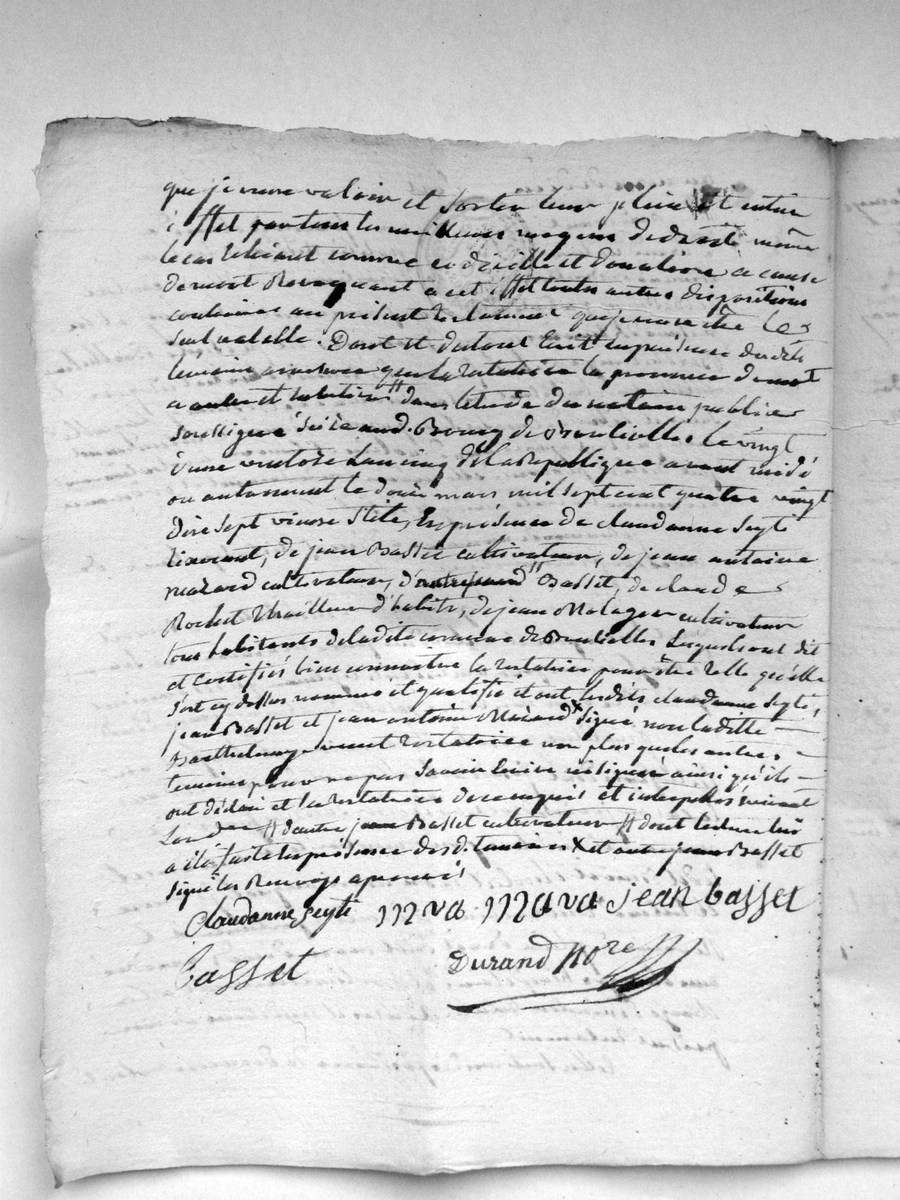 que je veux valoir et sortir leur plein et entier
effet par tous les meilleurs moyens de droit même
le cas échéant comme codicille et donation à cause
de mort Revoquant a cet effet toutes autres dispositions
contraires au présent testament que je veux être
seul valable. Dont et du tout Ecrit en présence desdits
témoins à mesure que la testatrice la prononcé de mot
a autre et habitée // dans l'étude du notaire publice
soussigné audit Bourg de le vingt
deux ventose Lan cinq de la Republique avant midi
ou autrement le douze mars mil sept cent quatre vingt
dix sept vieux stile, En présence de claudanne seyté
tisserant, de jean Basset cultivateur, de jean antoine
mazard cultivateur, Basset, de claude
Rochet tailleur d'habits, de jean Malager cultivateur
tous habitants de ladite commune de lesquels ont dit
et certifiés bien connoitre la testatrice pour être telle qu'elle
s'est cy dessus nommée et qualifiée et ont lesdits claudanne seyté,
jean Basset et jean antoine Mazard x signé non ladite
Barthelemye testatrice non plus que les autres
temoins pour ne pas savoir Ecrire ni signer ainsi qu'ils
ont déclaré et la testatrice de ce enquis et interpellés suivant
La // d'autre jean Basset cultivateur // dont lecture lui
a été faite en présence desd. temoins x et autre jean Basset
signé les Renvoys aprouvés
claudanne seyté jean basset
basset
Durand Nore